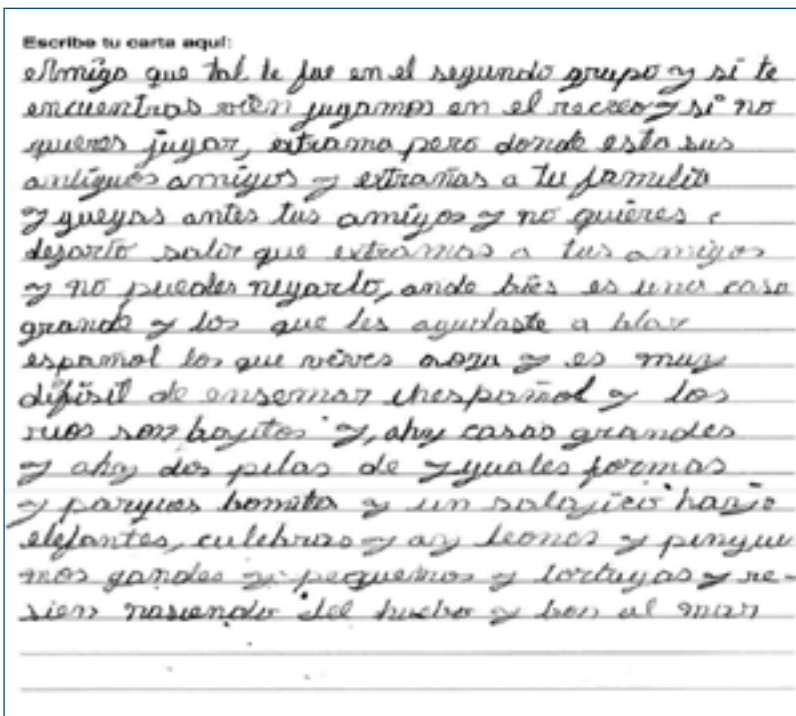 Escribe tu carta aquí:
Amigo que tal te fue en el segundo grupo y si te
encuentras vien jugamos en el recreo y si no
quieres jugar, extrama pero donde esta sus
antiguos amigos y extrañas a tu familia
y gueyas antes tus amigos y no quieres
dejarlo salir que extramas a tus amigos
y no puedes negarlo, ande bies es una casa
grande y los que les ayudaste a blar
espamol los que vives aora y es muy
difisil de ensemar español y los
rios son bajitos y, ahy casas grandes
y ahy dos pilas de yguales formas
y parques bomitos y un solojico
elefantes, culebras y ay leones y pingue
mos gandes y pequemos y tortugas y re-
sien nasiendo del huebo y ban al mar